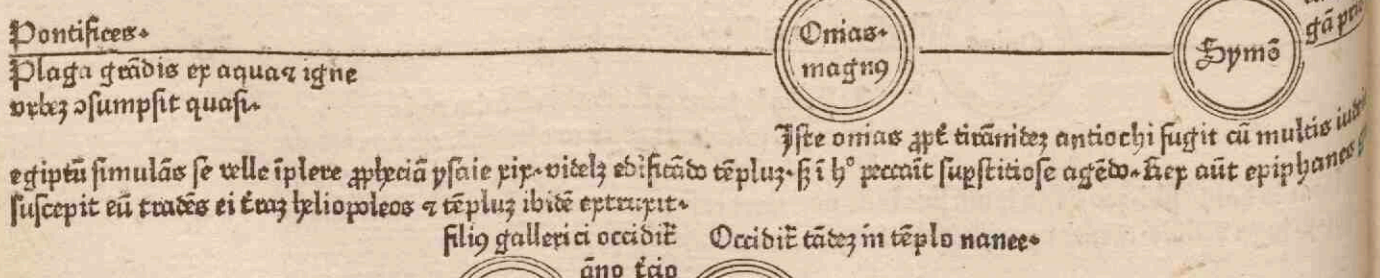 Pontifices.
Onias.
magnꝰ
Symō
gā
Plaga grādis ex aqua ⁊ igne
vrbeꝫ ↄsumpsit quasi.
Iste onias ꝓpt̄ tirānideꝫ antiochi fugit cū multis
egiptū simulās se velle īplere ꝓpheciā ysaie xix. videlꝫ edificādo tēpluꝫ. sꝫ ī hº peccauit suꝑstitiose agēdo. Rex aūt epiphanes
suscepit eū tradēs ei t̄raꝫ heliopoleos ⁊ tēpluꝫ ibidē extruxit.
filiꝰ gallerici occidit̄ Occidit̄ tādeꝫ in tēplo nanee.
āno t̄cio